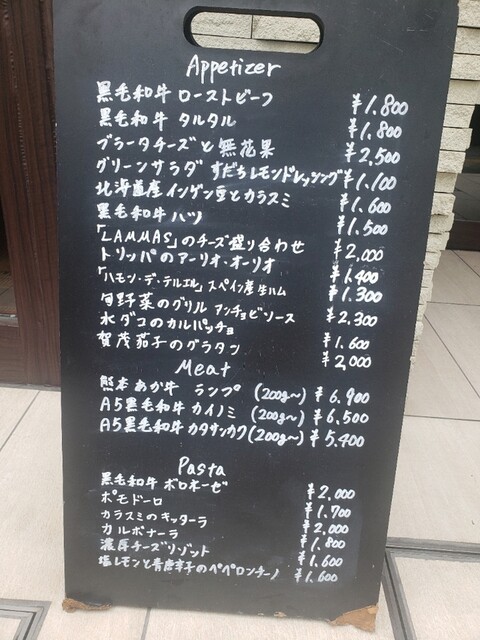 Appetizer
黒毛和牛 ローストビーフ ¥1,800
黒毛和牛 タルタル ¥1,800
ブラータチーズと無花果 ¥2,500
グリーンサラダ すだちレモンドレッシング ¥1,100
北海道産インゲン豆とカラスミ ¥1,600
黒毛和牛ハツ ¥1,500
「LAMMAS」のチーズ盛り合わせ ¥2,000
トリッパのアーリオ・オーリオ ¥1,400
「ハモン・デ・テルエル」スペイン産生ハム ¥1,300
旬野菜のグリル アンチョビソース ¥2,300
水ダコのカルパッチョ ¥1,600
賀茂茄子のグラタン ¥2,000
Meat
熊本あか牛 ランプ (200g〜) ¥6,900
A5黒毛和牛 カイノミ (200g〜) ¥6,500
A5黒毛和牛 カタサンカク (200g〜) ¥5,400
Pasta
黒毛和牛 ボロネーゼ ¥2,000
ポモドーロ ¥1,700
カラスミのキッターラ ¥2,000
カルボナーラ ¥1,800
濃厚チーズリゾット ¥1,600
塩レモンと青唐辛子のペペロンチーノ ¥1,600